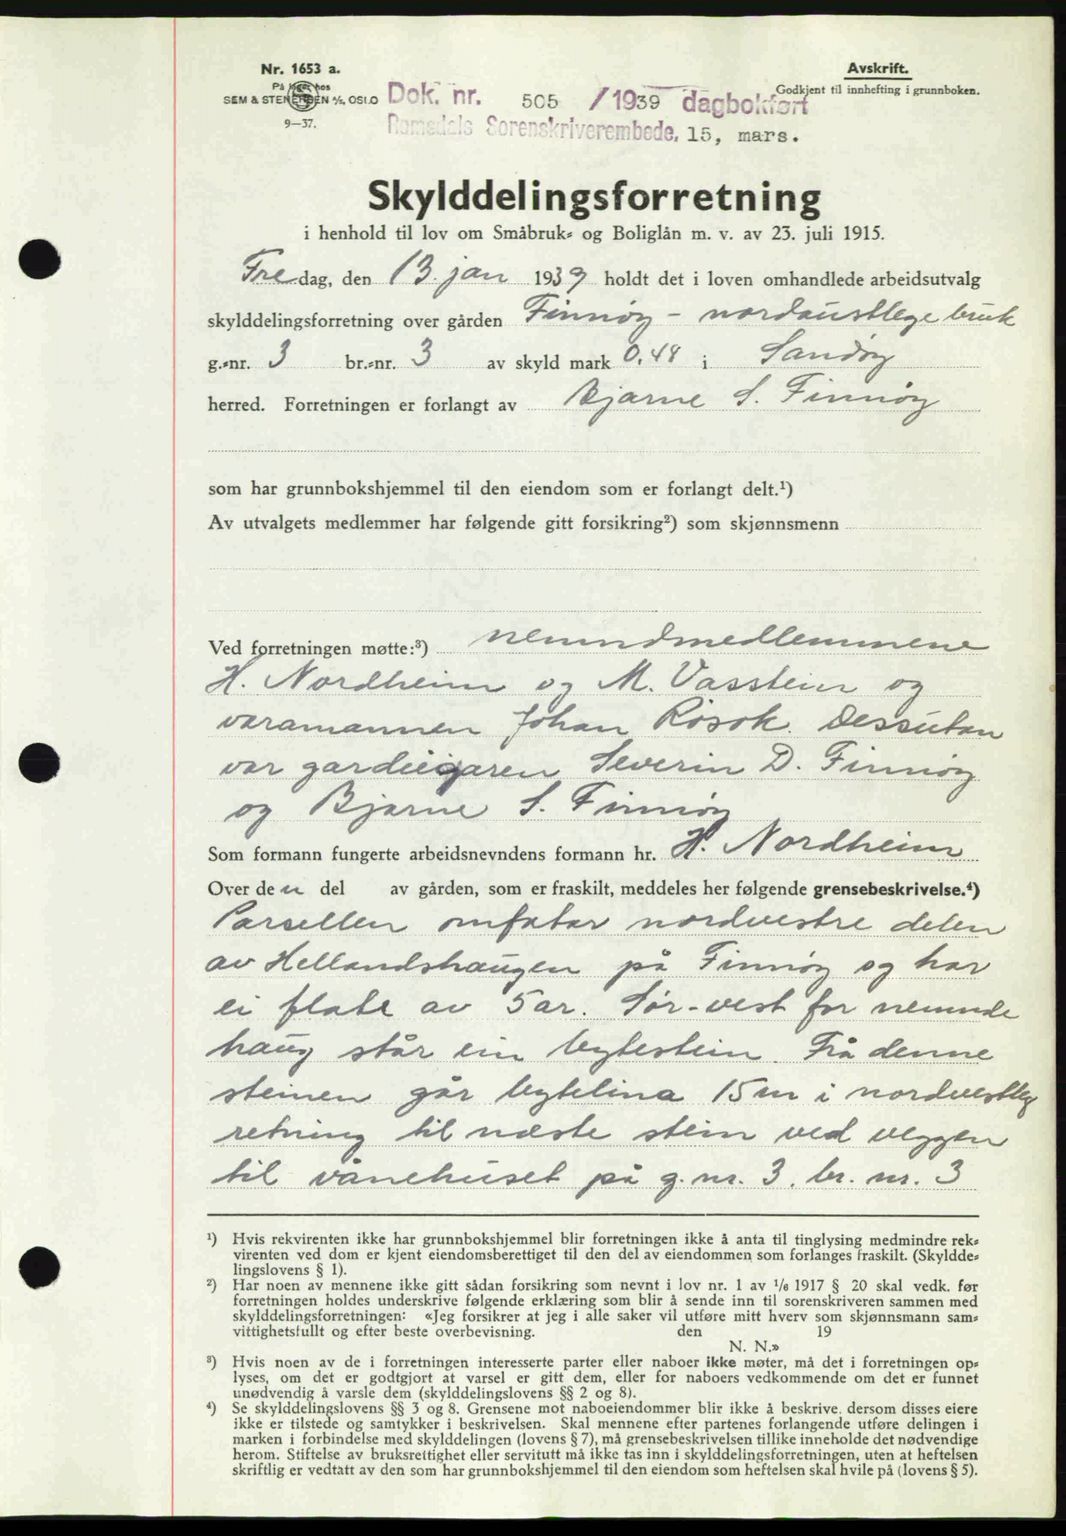 Nr. 1653 a.
På lager hos
SEM & STENERSEN A/S, OSLO
9—37.
Avskrift.
Godkjent til innhefting i grunnboken.
Dok. nr. 505 /1939 dagbokført
Romsdals Sorenskriverembede, 15, mars.
Skylddelingsforretning
i henhold til lov om Småbruk- og Boliglån m. v. av 23. juli 1915.
Fredag, den 13. jan 1939 holdt det i loven omhandlede arbeidsutvalg
skylddelingsforretning over gården Finnøy - nordaustlege bruk
g.-nr. 3 br.-nr. 3 av skyld mark 0,48 i Sandøy
herred. Forretningen er forlangt av Bjarne S. Finnøy
som har grunnbokshjemmel til den eiendom som er forlangt delt.¹)
Av utvalgets medlemmer har følgende gitt forsikring²) som skjønnsmenn
Ved forretningen møtte:³) nemndmedlemmene
H. Nordheim og M. Vasstein og
varamannen Johan Rösok. Dessutan
var gardeigaren Severin D. Finnøy
og Bjarne S. Finnøy
Som formann fungerte arbeidsnevndens formann hr. H. Nordheim
Over den del av gården, som er fraskilt, meddeles her følgende grensebeskrivelse.⁴)
Parsellen omfatar nordvestre delen
av Hellandshaugen på Finnøy og har
ei flate av 5 ar. Sør-vest for nemnde
haug står ein bytestein. Frå denne
steinen går bytelina 15 m i nordvestleg
retning til næste stein ved veggen
til vånehuset på g. nr. 3. br. nr. 3
¹) Hvis rekvirenten ikke har grunnbokshjemmel blir forretningen ikke å anta til tinglysing medmindre rek-
virenten ved dom er kjent eiendomsberettiget til den del av eiendommen som forlanges fraskilt. (Skyldde-
lingslovens § 1).
²) Har noen av mennene ikke gitt sådan forsikring som nevnt i lov nr. 1 av 1/6 1917 § 20 skal vedk. før
forretningen holdes underskrive følgende erklæring som blir å sende inn til sorenskriveren sammen med
skylddelingsforretningen: «Jeg forsikrer at jeg i alle saker vil utføre mitt hverv som skjønnsmann sam-
vittighetsfullt og efter beste overbevisning. den 19
N. N.»
³) Hvis noen av de i forretningen interesserte parter eller naboer ikke møter, må det i forretningen op-
lyses, om det er godtgjort at varsel er gitt dem, eller for naboers vedkommende om det er funnet
unødvendig å varsle dem (skylddelingslovens §§ 2 og 8).
⁴) Se skylddelingslovens §§ 3 og 8. Grensene mot naboeiendommer blir ikke å beskrive. dersom disses eiere
ikke er tilstede og samtykker i beskrivelsen. Skal mennene efter partenes forlangende utføre delingen i
marken i forbindelse med skylddelingen (lovens § 7), må grensebeskrivelsen tillike inneholde det nødvendige
herom. Stiftelse av bruksrettighet eller servitutt må ikke tas inn i skylddelingsforretningen, uten at heftelsen
skriftlig er vedtatt av den som har grunnbokshjemmel til den eiendom som heftelsen skal hvile på (lovens § 5).